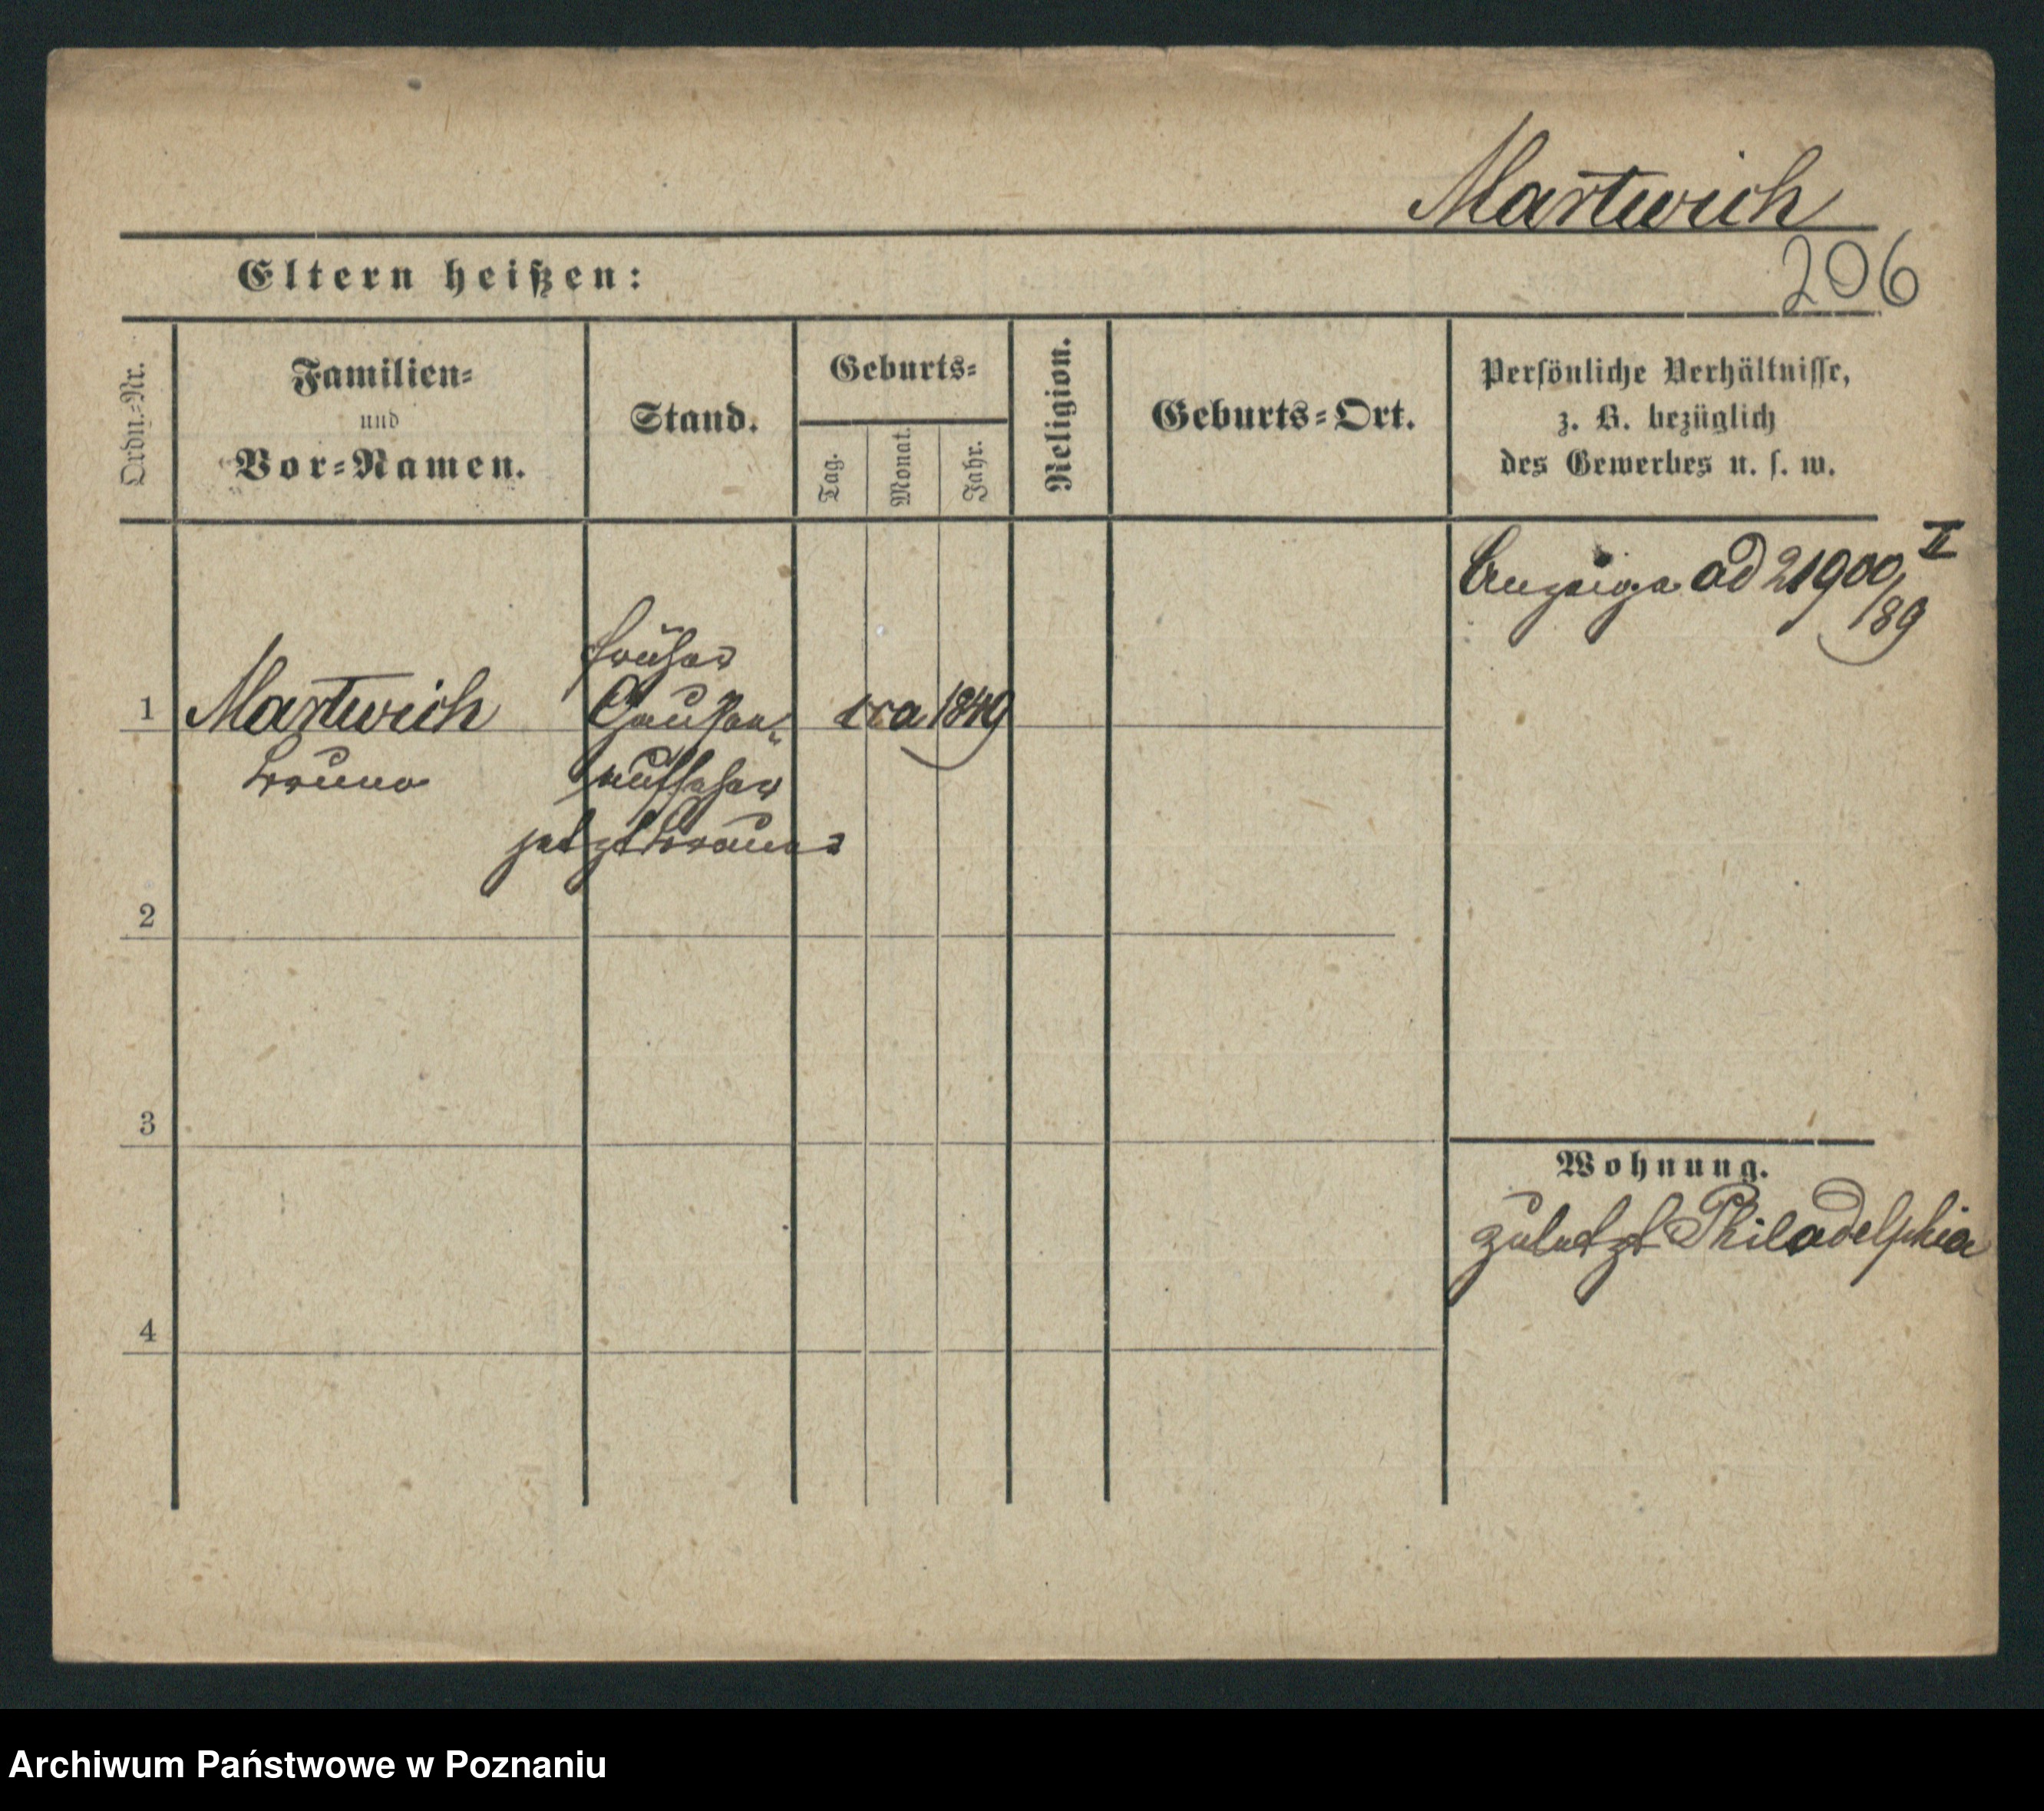 Martwich
206
Eltern heißen:
Ordn.-Nr.
Familien-
und
Vor-Namen.
Stand.
Geburts-
Tag.
Monat.
Jahr.
Religion.
Geburts-Ort.
Persönliche Verhältnisse,
z. B. bezüglich
des Gewerbes u. s. w.
Anzeige ad 21900/89 II
früher
1 Martwich
cca 1849
Bruno
aufseher
jetzt Brauer
2
3
Wohnung.
zuletzt Philadelphia
4
Archiwum Państwowe w Poznaniu